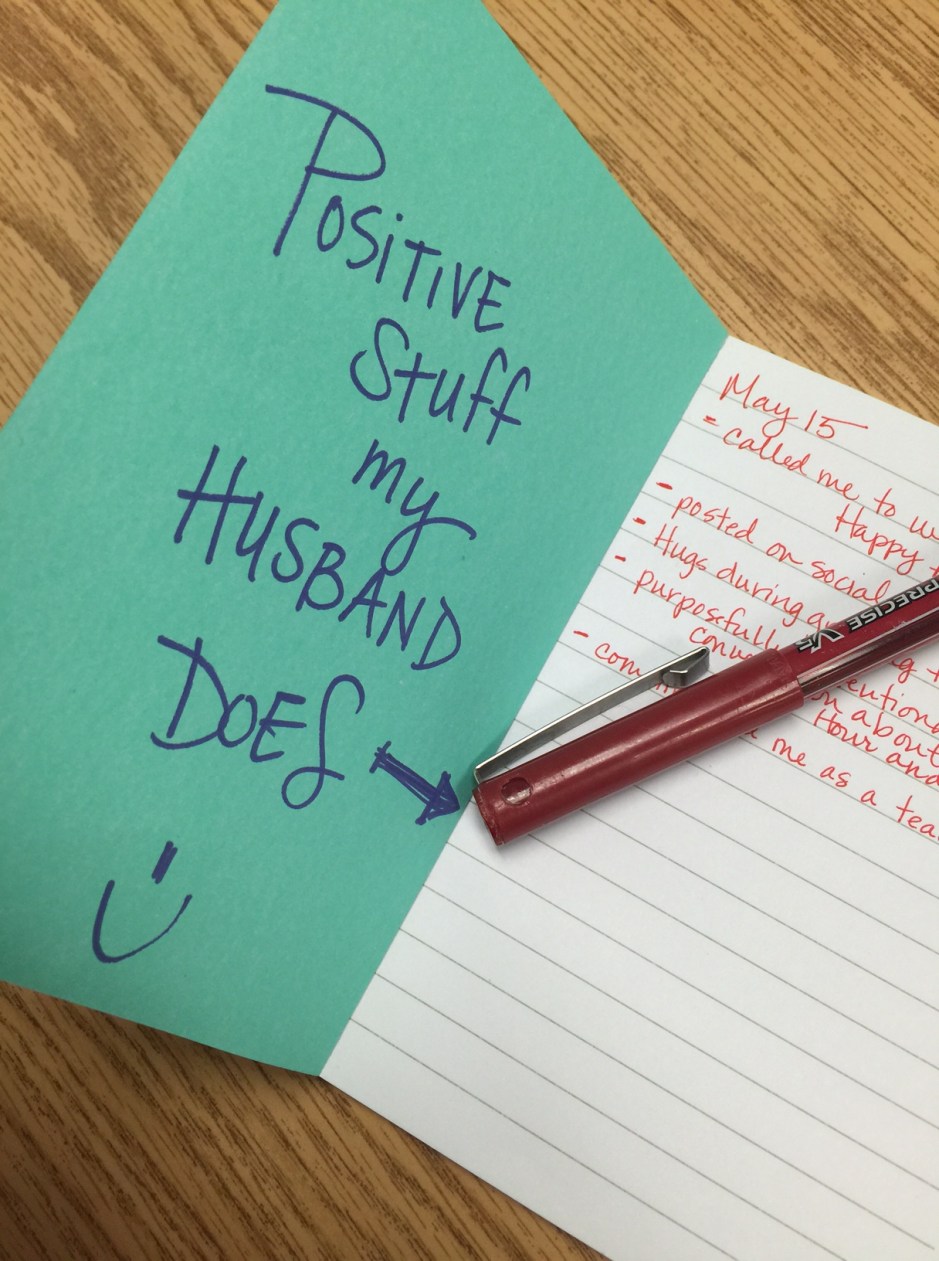 Positive
Stuff
my
Husband
Does
May 15
- called me to
Happy
- posted on social
- Hugs during
- purposefully
- 
about
Hour and
me as a
PRECISE V5